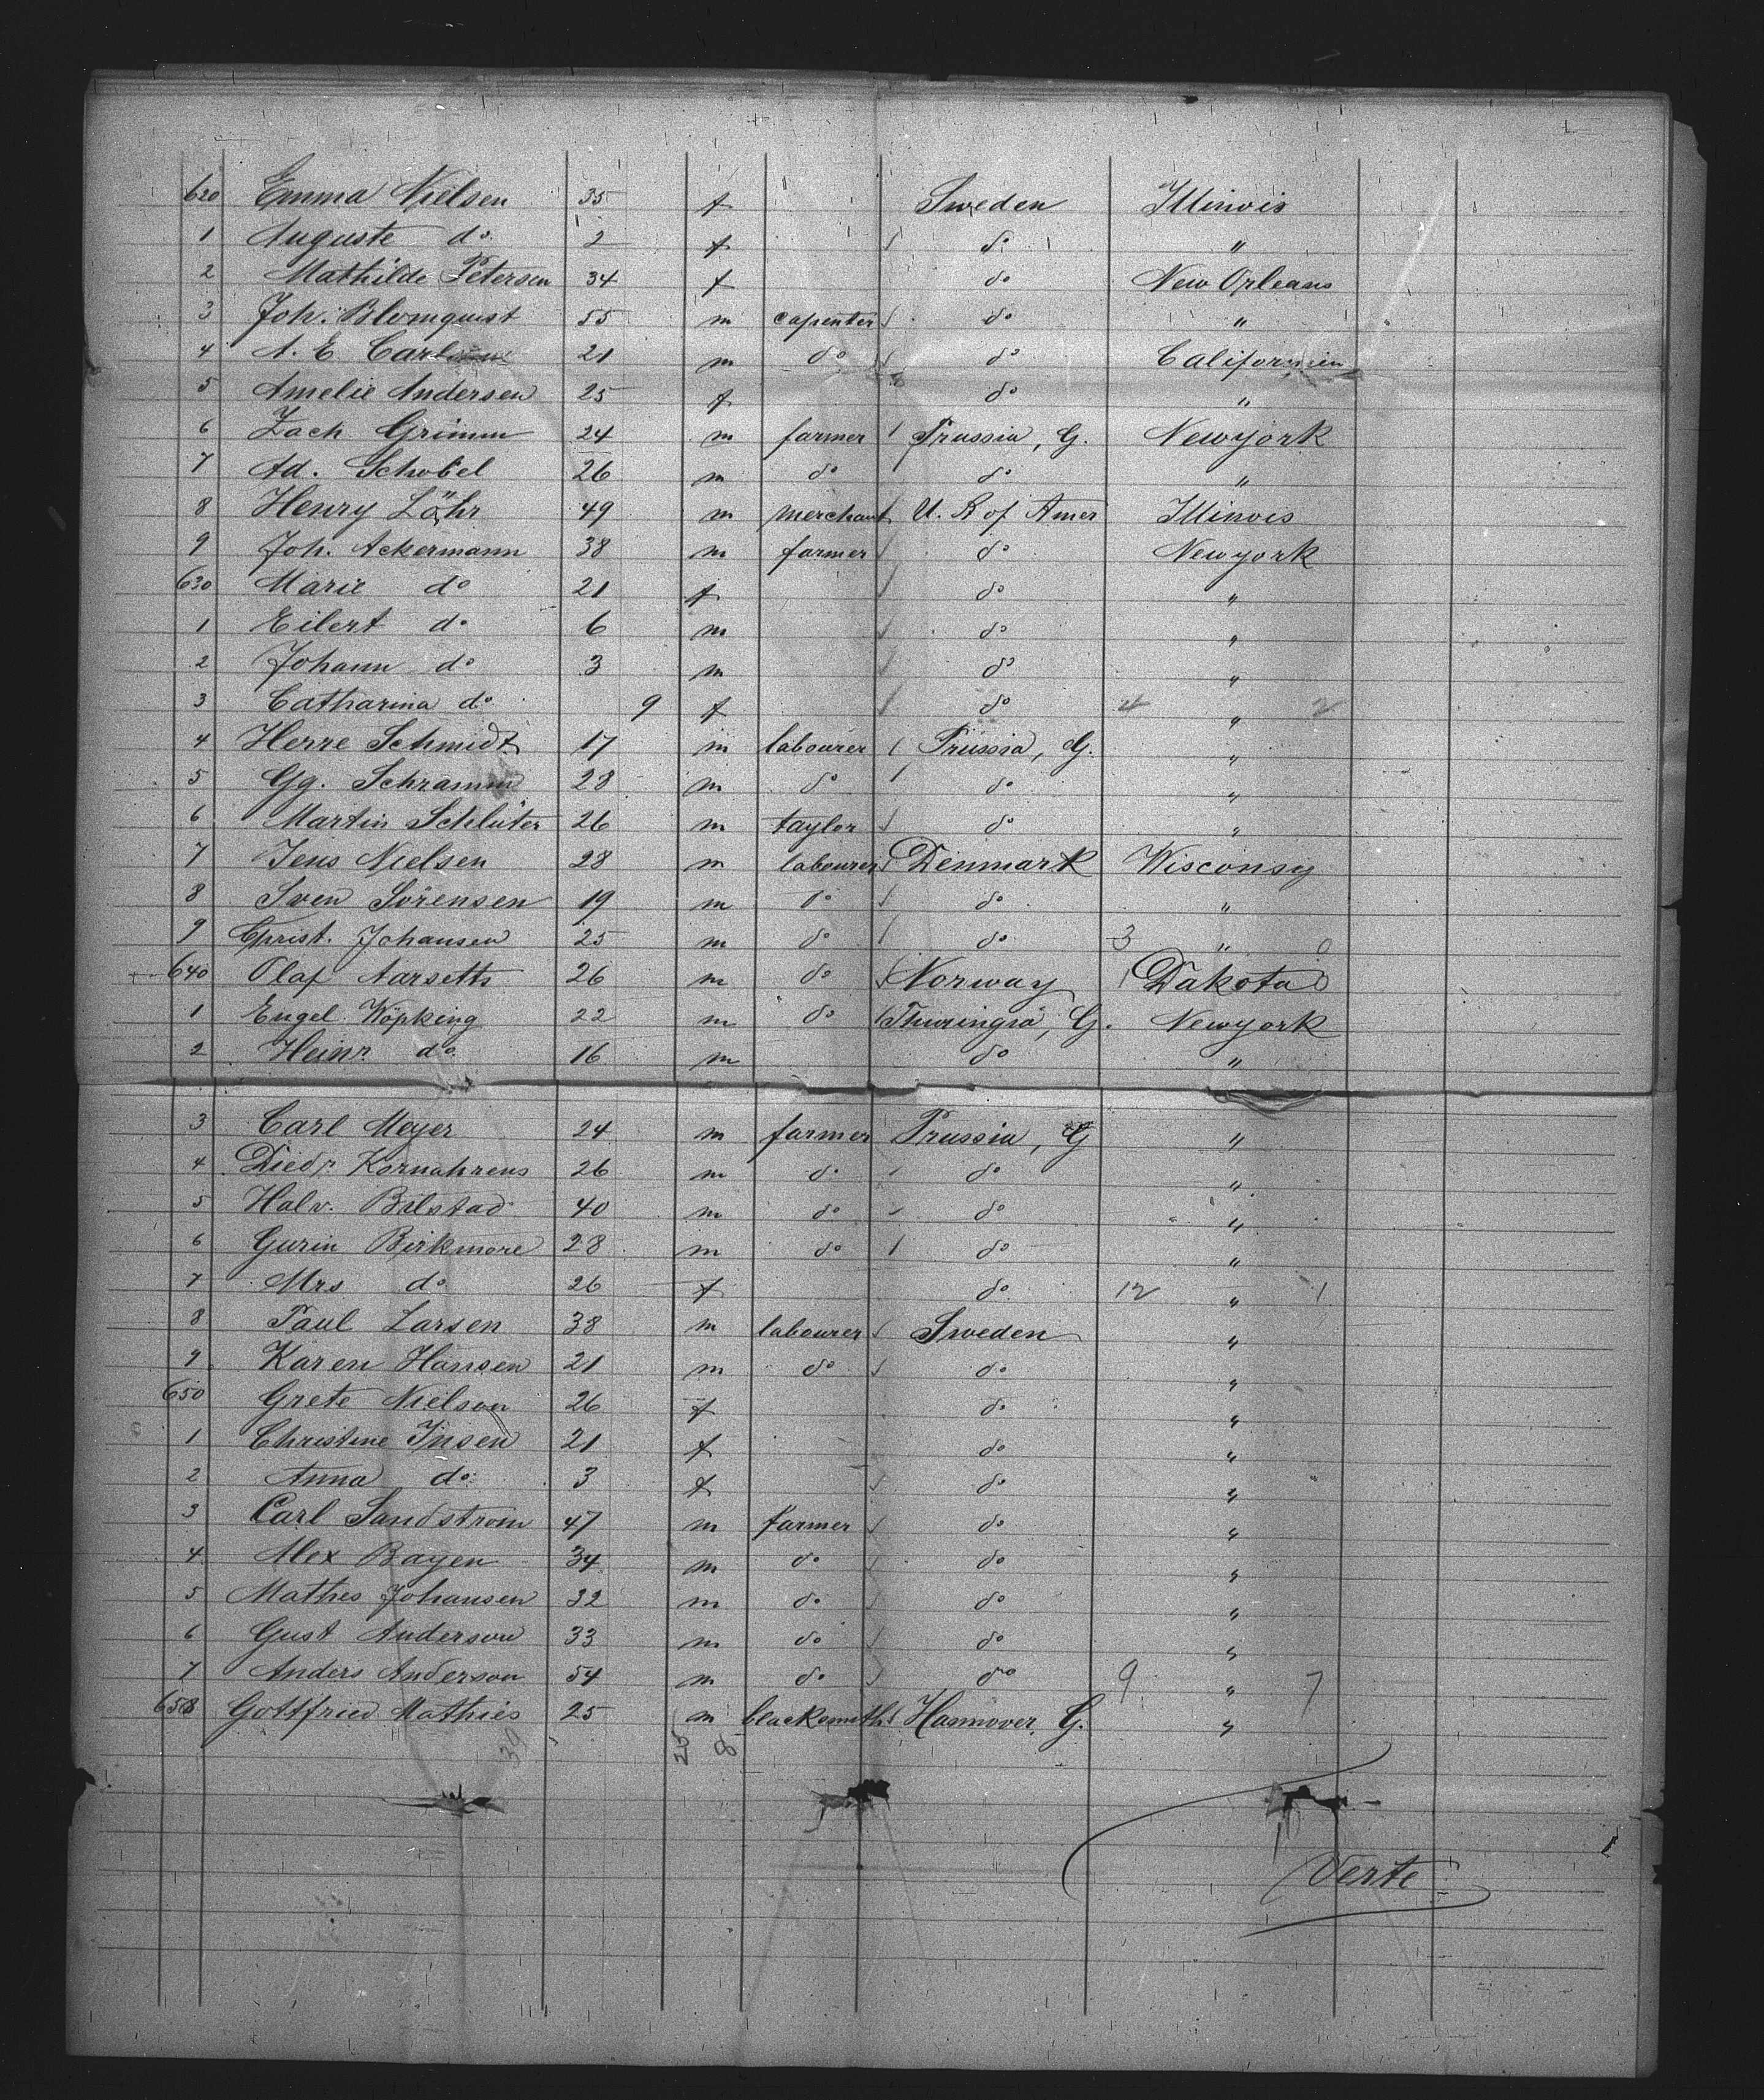 620 Emma Nielsen 35 f Sweden Illinois
1 Auguste do 2 f do "
2 Mathilde Petersen 34 f do New Orleans
3 Joh. Blomquist 55 m capenter do "
4 A. E. 21 m do do Californien
5 Amelie Andersen 25 f do "
6 Zach Grimm 24 m farmer Prussia, G. Newyork
7 Ad. Schobel 26 m do do "
8 Henry Löhr 49 m merchant U. S. of Amer Illinois
9 Joh. Ackermann 38 m farmer do Newyork
630 Marie do 21 f do "
1 Eilert do 6 m do "
2 Johann do 3 m do "
3 Catharina do 9 f do 4 " 2
4 Herre Schmidt 17 m labourer Prussia, G. "
5 Gg. Schramm 28 m do do "
6 Martin Schlüter 26 m taylor do "
7 Jens Nielsen 28 m labourer Denmark Wisconsy
8 Sven Sörensen 19 m do do "
9 Christ. Johansen 25 m do do 3 " 0
640 Olaf Aarseth 26 m do Norway 1 Dakota 0
1 Engel Köpking 22 m do Thuringia, G. Newyork
2 Heinr. do 16 m do "
3 Carl Meyer 24 m farmer Prussia, G "
4 Diedr. Kornahrens 26 m do do "
5 Halv. Bilstad 40 m do do "
6 Gurin Birkmore 28 m do do "
7 Mrs do 26 f do 12 " 1
8 Paul Larsen 38 m labourer Sweden "
9 Karen Hansen 21 m do do "
650 Grete Nielson 26 f do "
1 Christine Jnsen 21 f do "
2 Anna do 3 f do "
3 Carl Sandstrom 47 m farmer do "
4 Alex Bayen 34 m do do "
5 Mathes Johansen 32 m do do "
6 Gust Anderson 33 m do do "
7 Anders Anderson 54 m do do 9 " 7
658 Gottfried Mathies 25 m blacksmith Hannover, G. "
39 25 8
Verte